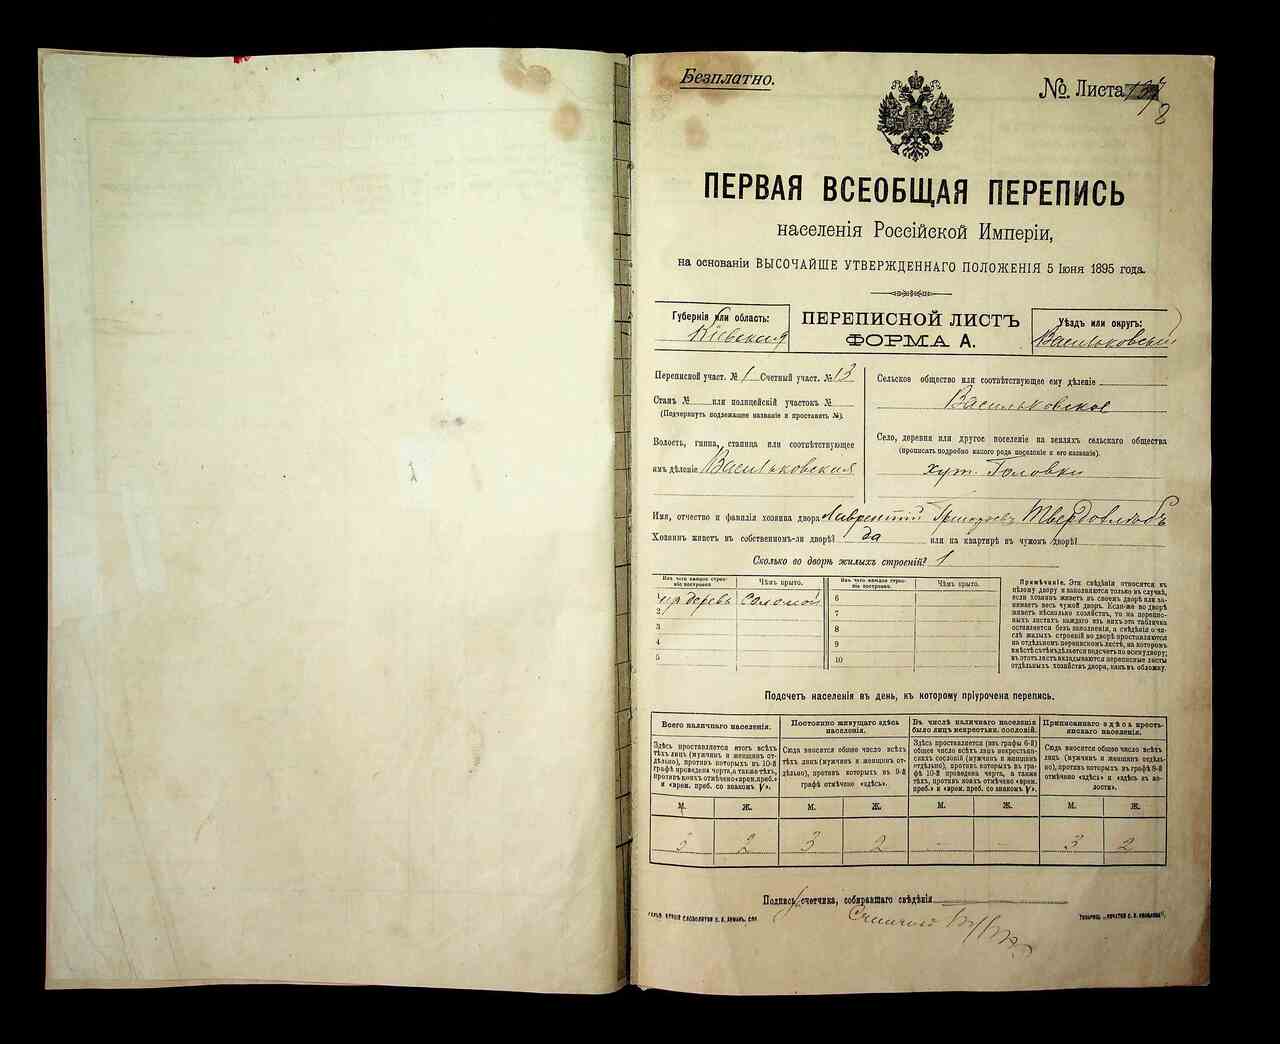 Безплатно.
№. Листа
ПЕРВАЯ ВСЕОБЩАЯ ПЕРЕПИСЬ
населенія Россійской Имперіи,
на основаніи ВЫСОЧАЙШЕ УТВЕРЖДЕННАГО ПОЛОЖЕНІЯ 5 Іюня 1895 года.
Губернія или область:
Кіевская
ПЕРЕПИСНОЙ ЛИСТЪ
ФОРМА А.
Уѣздъ или округъ:
Васильковскій
Переписной участ. № 1 Счетный участ. № 13
Станъ № или полицейскій участокъ №
(Подчеркнуть подлежащее названіе и проставить №).
Волость, гмина, станица или соотвѣтствующее
имъ дѣленіе Васильковская
Сельское общество или соотвѣтствующее ему дѣленіе
Васильковское
Село, деревня или другое поселеніе на земляхъ сельскаго общества
(прописать подробно какого рода поселеніе и его названіе).
хут. Головки
Имя, отчество и фамилія хозяина двора Лаврентій Григорьевъ Твердохлѣбъ
Хозяинъ живетъ въ собственномъ-ли дворѣ? да или на квартирѣ въ чужомъ дворѣ?
Сколько во дворѣ жилыхъ строеній? 1
Изъ чего каждое строе-
ніе построено.
Чѣмъ крыто.
Изъ чего каждое строе-
ніе построено.
Чѣмъ крыто.
соломой
6
2
7
3
8
4
9
5
10
Примѣчаніе. Эти свѣдѣнія относятся къ
цѣлому двору и заполняются только въ случаѣ,
если хозяинъ живетъ въ своемъ дворѣ или за-
нимаетъ весь чужой дворъ. Если-же во дворѣ
живетъ нѣсколько хозяйствъ, то на перепис-
ныхъ листахъ каждаго изъ нихъ эта табличка
оставляется безъ заполненія, а свѣдѣнія о чи-
слѣ жилыхъ строеній во дворѣ проставляются
на отдѣльномъ переписномъ листѣ, на которомъ
вмѣстѣ съ тѣмъ дѣлается подсчетъ по всему двору;
въ этотъ листъ вкладываются переписные листы
отдѣльныхъ хозяйствъ двора, какъ въ обложку.
Подсчетъ населенія въ день, къ которому пріурочена перепись.
Всего наличнаго населенія.
Здѣсь проставляется итогъ всѣхъ
тѣхъ лицъ (мужчинъ и женщинъ от-
дѣльно), противъ которыхъ въ 10-й
графѣ проведена черта, а также тѣхъ,
противъ коихъ отмѣчено «врем. преб.»
и «врем. преб. со знакомъ V».
Постоянно живущаго здѣсь
населенія.
Сюда вносится общее число всѣхъ
тѣхъ лицъ (мужчинъ и женщинъ от-
дѣльно), противъ которыхъ въ 9-й
графѣ отмѣчено «здѣсь».
Въ числѣ наличнаго населенія
было лицъ некрестьян. сословій.
Здѣсь проставляется (изъ графы 6-й)
общее число всѣхъ лицъ некрестьян-
скихъ сословій (мужчинъ и женщинъ
отдѣльно), противъ которыхъ въ гра-
фѣ 10-й проведена черта, а также
тѣхъ, противъ коихъ отмѣчено «врем.
преб.» и «врем. преб. со знакомъ V».
Приписаннаго здѣсь кресть-
янскаго населенія.
Сюда вносится общее число всѣхъ
лицъ (мужчинъ и женщинъ отдѣль-
но), противъ которыхъ въ графѣ 8-й
отмѣчено «здѣсь» и «здѣсь въ во-
лости».
М. Ж. М. Ж. М. Ж. М. Ж.
3 2 3 2 - - 3 2
Подпись счетчика, собиравшаго свѣдѣнія